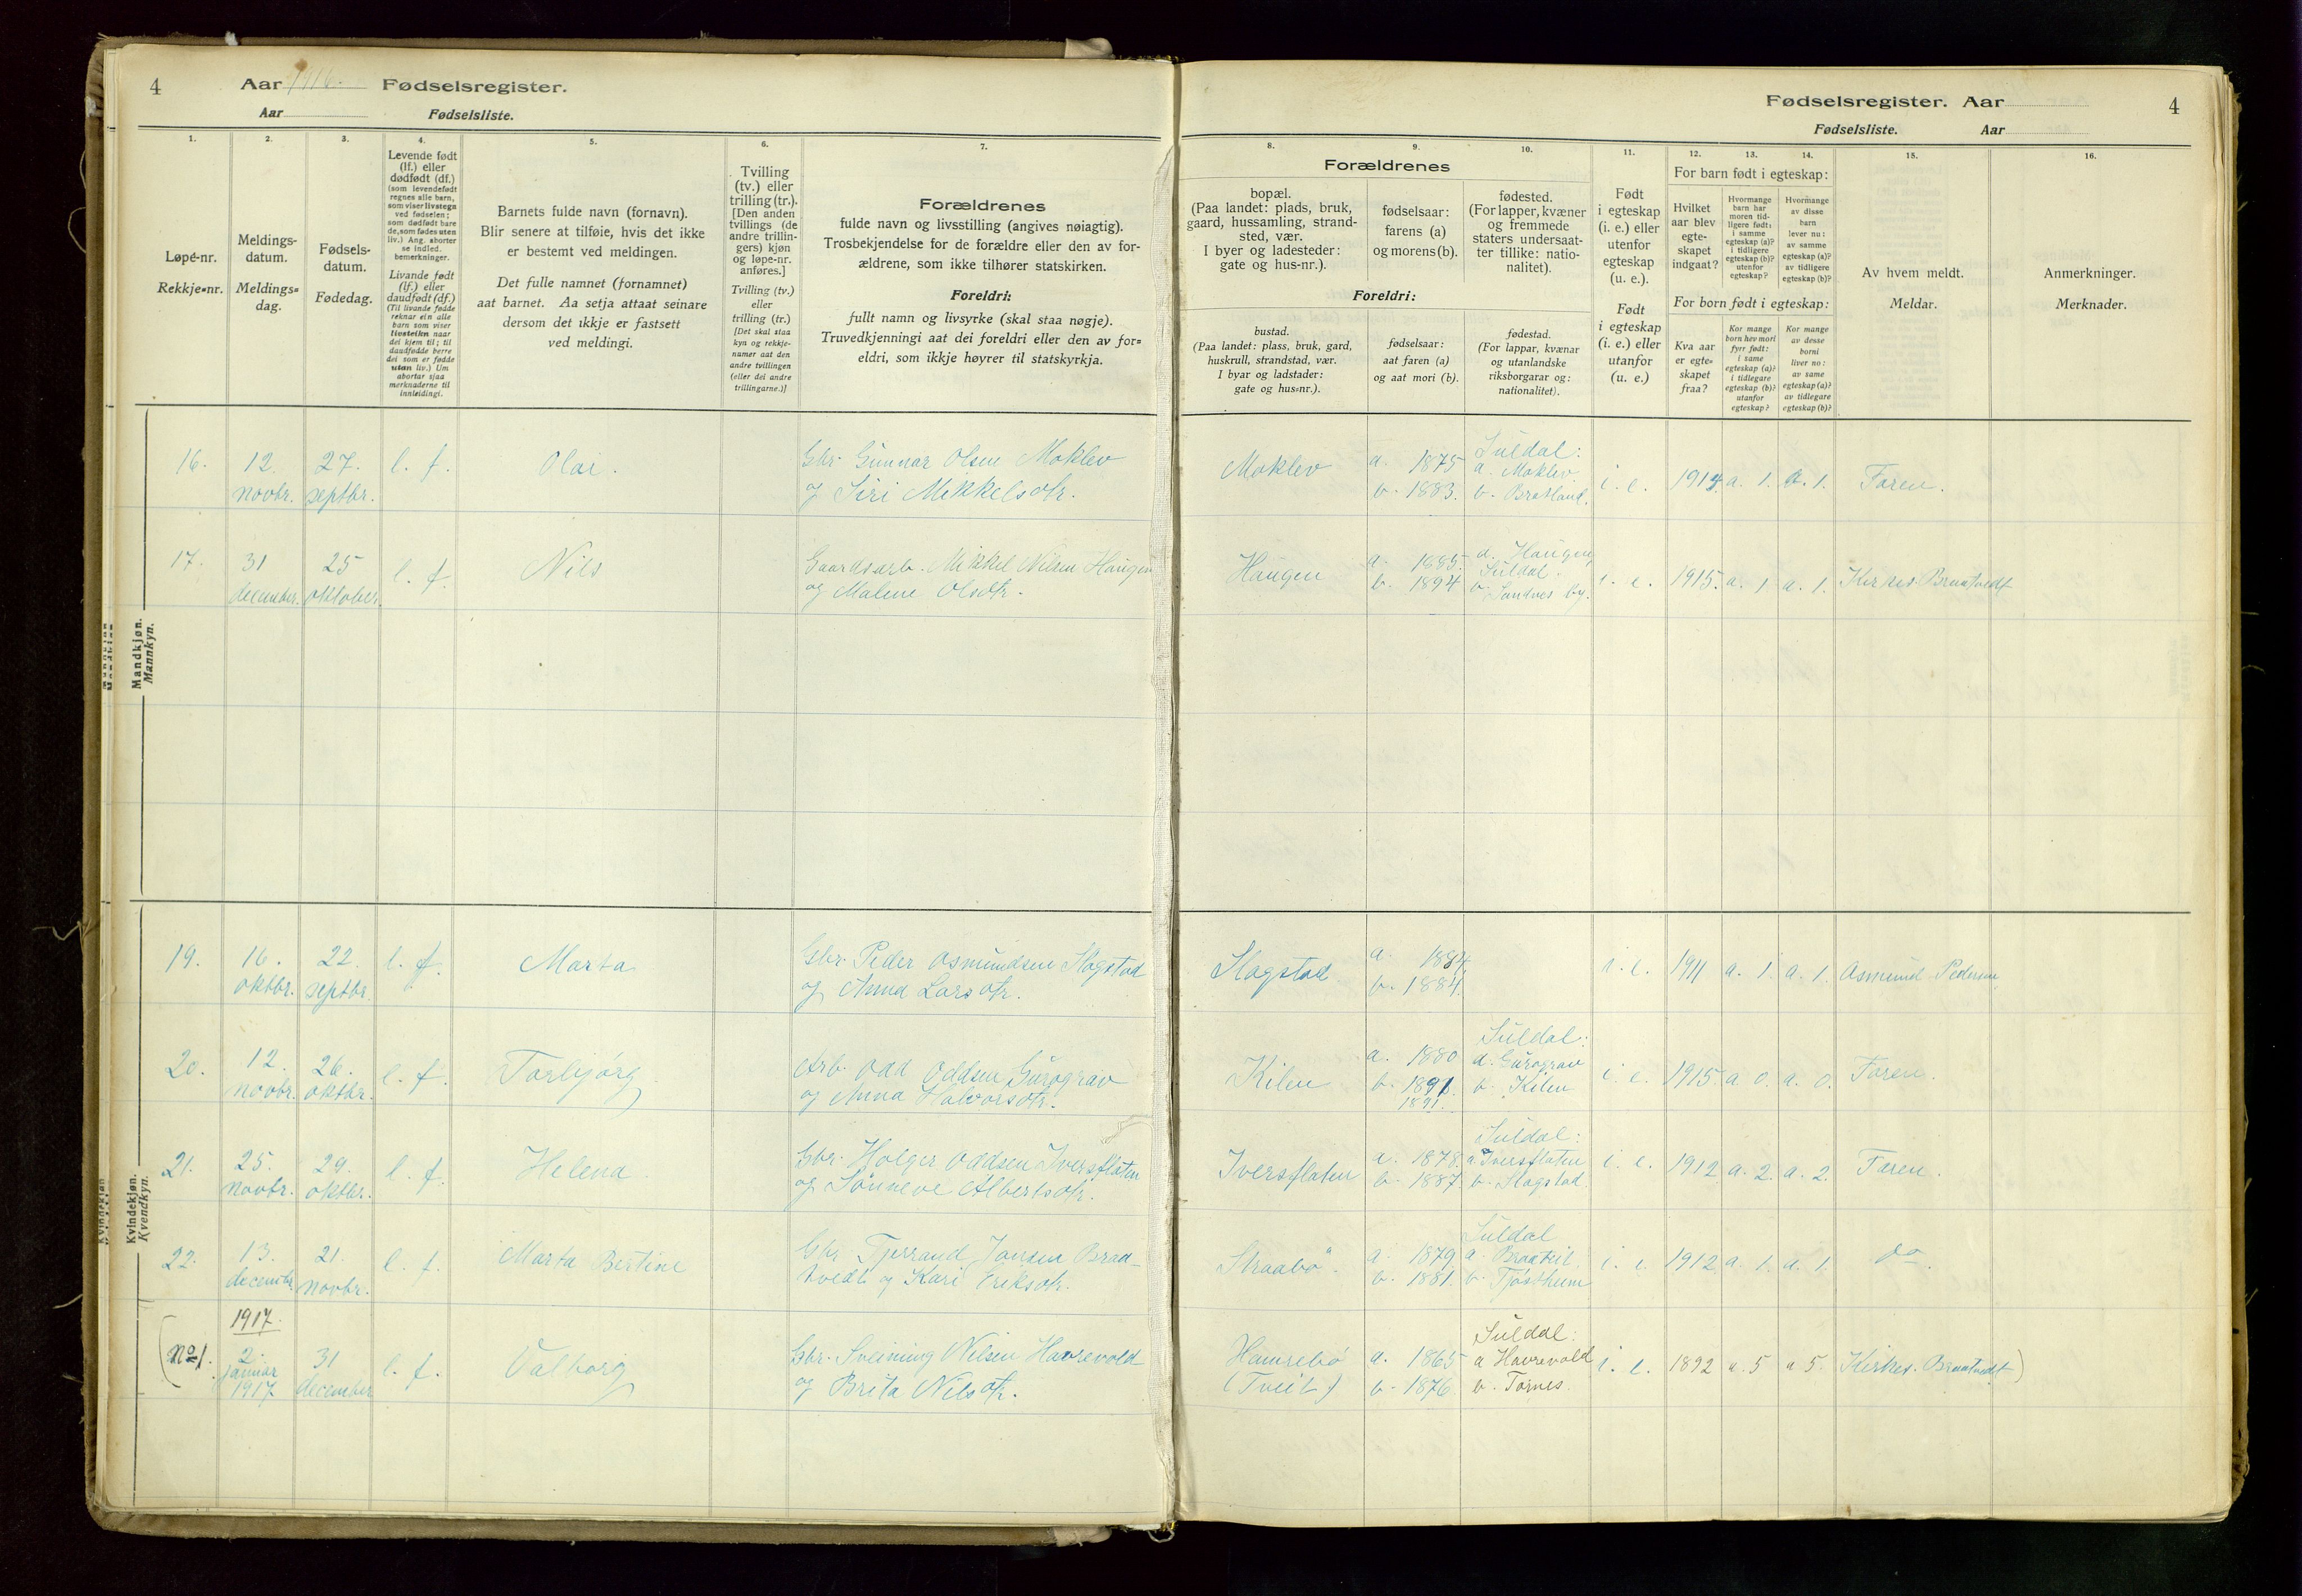 4 Aar 1916. Fødselsregister.
Aar Fødselsliste.
Fødselsregister. Aar 4
Fødselsliste. Aar
1. 2. 3. 4. 5. 6. 7. 8. 9. 10. 11. 12. 13. 14. 15. 16.
Løpe-nr.
Rekkje-nr.
Meldings-
datum.
Meldings-
dag.
Fødsels-
datum.
Fødedag.
Levende født
(lf.) eller
dødfødt (df.)
(som levendefødt
regnes alle barn,
som viser livstegn
ved fødselen;
som dødfødt bare
de, som fødes uten
liv.) Ang. aborter
se indled.
bemerkninger.
Livande født
(lf.) eller
daudfødt (df.)
(Til livande fødde
reknar ein alle
born som viser
livsteikn naar
dei kjem til; til
daudfødde berre
dei som er fødde
utan liv.) Um
abortar sjaa
merknaderne til
innleidingi.
Barnets fulde navn (fornavn).
Blir senere at tilføie, hvis det ikke
er bestemt ved meldingen.
Det fulle namnet (fornamnet)
aat barnet. Aa setja attaat seinare
dersom det ikkje er fastsett
ved meldingi.
Tvilling
(tv.) eller
trilling (tr.).
[Den anden
tvillings (de
andre trillin-
gers) kjøn
og løpe-nr.
anføres.]
Tvilling (tv.)
eller
trilling (tr.)
[Det skal staa
kyn og rekkje-
numer aat den
andre tvillingen
(eller dei andre
trillingarne.)]
Forældrenes
fulde navn og livsstilling (angives nøiagtig).
Trosbekjendelse for de forældre eller den av for-
ældrene, som ikke tilhører statskirken.
Foreldri:
fullt namn og livsyrke (skal staa nøgje).
Truvedkjenningi aat dei foreldri eller den av for-
eldri, som ikkje høyrer til statskyrkja.
Forældrenes
bopæl.
(Paa landet: plads, bruk,
gaard, hussamling, strand-
sted, vær.
I byer og ladesteder:
gate og hus-nr.).
fødselsaar:
farens (a)
og morens (b).
fødested.
(For lapper, kvæner
og fremmede
staters undersaat-
ter tillike: natio-
nalitet).
Foreldri:
bustad.
(Paa landet: plass, bruk, gard,
huskrull, strandstad, vær.
I byar og ladstader:
gate og hus-nr.).
fødselsaar:
aat faren (a)
og aat mori (b).
fødestad.
(For lappar, kvænar
og utanlandske
riksborgarar og:
nationalitet).
Født
i egteskap
(i. e.) eller
utenfor
egteskap
(u. e.).
Født
i egteskap
(i. e.) eller
utanfor
(u. e.)
For barn født i egteskap:
Hvilket
aar blev
egte-
skapet
indgaat?
Hvormange
barn har
moren tid-
ligere født:
i samme
egteskap (a)?
i tidligere
egteskap (b)?
utenfor
egteskap?
Hvormange
av disse
barn
lever nu:
av samme
egteskap (a)?
av tidligere
egteskap (b)?
For born født i egteskap:
Kva aar
er egte-
skapet
fraa?
Kor mange
born hev mori
fyrr født:
i same
egteskap (a)?
i tidlegare
egteskap (b)?
utanfor
egteskap?
Kor mange
av desse
borni
liver no:
av same
egteskap (a)?
av tidlegare
egteskap (b)?
Av hvem meldt.
Meldar.
Anmerkninger.
Merknader.
Mandkjøn.
Mannkyn.
16. 12. novbr. 27. septbr. l. f. Olai.
Gbr. Gunnar Olsen Moklev
og Siri Mikkelsdtr.
Moklev a. 1875 b. 1883. Suldal: a. Moklev b. Bratland. i. e. 1914. a. 1. a. 1. Faren.
17. 31 december. 25 oktober. l. f. Nils
Gaardsarb. Mikkel Nilsen Haugen
og Malene Olsdtr.
Haugen a. 1885. b. 1894 a. Haugen, Suldal. b. Sandnes by. i. e. 1915. a. 1 a. 1. Kirkes. Braatvedt
Kvindekjøn.
Kvendkyn.
19. 16. oktbr. 22. septbr. l. f. Marta
Gbr. Peder Osmundsen Slagstad
og Anna Larsdtr.
Slagstad a. 1884 b. 1884. i. e. 1911 a. 1. a. 1. Asmund Pedersen
20. 12. novbr. 26. oktbr. l. f. Torbjørg
Arb. Odd Oddsen Gurograv
og Anna Halvorsdtr.
Kilen a. 1880 b. 1891. 1891. Suldal: a. Gurograv b. Kilen i. e. 1915. a. 0. a. 0. Faren.
21. 25. novbr. 29. oktbr. l. f. Helena.
Gbr. Holger Oddsen Iversflaten
og Sønneve Albertsdtr.
Iversflaten a. 1878. b. 1887. Suldal: a. Iversflaten b. Slagstad. i. e. 1912 a. 2. a. 2. Faren.
22. 13. decembr. 21. novbr. l. f. Marta Bertine
Gbr. Tjerrand Jansen Braa-
tvedt og Kari Eriksdtr.
Straabø. a. 1879 b. 1881. Suldal a. Braatveit b. Tjøstheim i. e. 1912 a. 1. a. 1. do.
1917.
(No 1. 2. januar 1917 31 december l. f. Valborg
Gbr. Sveinung Nilsen Havrevold
og Brita Nilsdtr.
Hamrebø (Tveit) a. 1865 b. 1876. Suldal: a Havrevold b. Tornes. i. e. 1892 a. 5 a 5. Kirkes. Braatvedt)